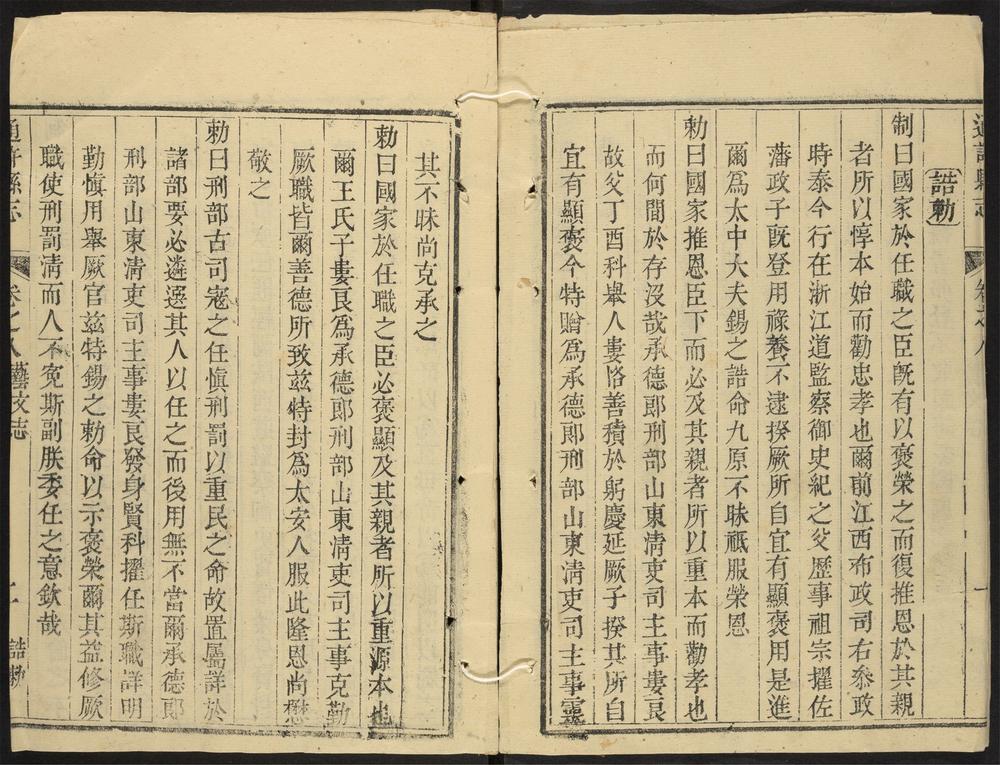 通許縣志
卷之八
一
誥勅
制曰國家於任職之臣旣有以褒榮之而復推恩於其親
者所以惇本始而勸忠孝也爾前江西布政司右叅政
時泰今行在浙江道監察御史紀之父歷事祖宗擢佐
藩政子旣登用祿養不逮揆厥所自宜有顯褒用是進
爾爲太中大夫錫之誥命九原不昧祗服榮恩
勅曰國家推恩臣下而必及其親者所以重本而勸孝也
而何間於存沒哉承德郎刑部山東淸吏司主事婁良
故父丁酉科舉人婁恪善積於躬慶延厥子揆其所自
宜有顯褒今特贈爲承德郎刑部山東淸吏司主事靈
其不昧尚克承之
勅曰國家於任職之臣必褒顯及其親者所以重源本也
爾王氏子婁良爲承德郎刑部山東淸吏司主事克勤
厥職皆爾善德所致茲特封爲太安人服此隆恩尚懋
敬之
勅曰刑部古司寇之任愼刑罰以重民之命故置屬詳於
諸部要必遴選其人以任之而後用無不當爾承德郎
刑部山東淸吏司主事婁良發身賢科擢任斯職詳明
勤愼用舉厥官茲特錫之勅命以示褒榮爾其益修厥
職使刑罰淸而人不寃斯副朕委任之意欽哉
通許縣志
卷之八藝文志
誥勅